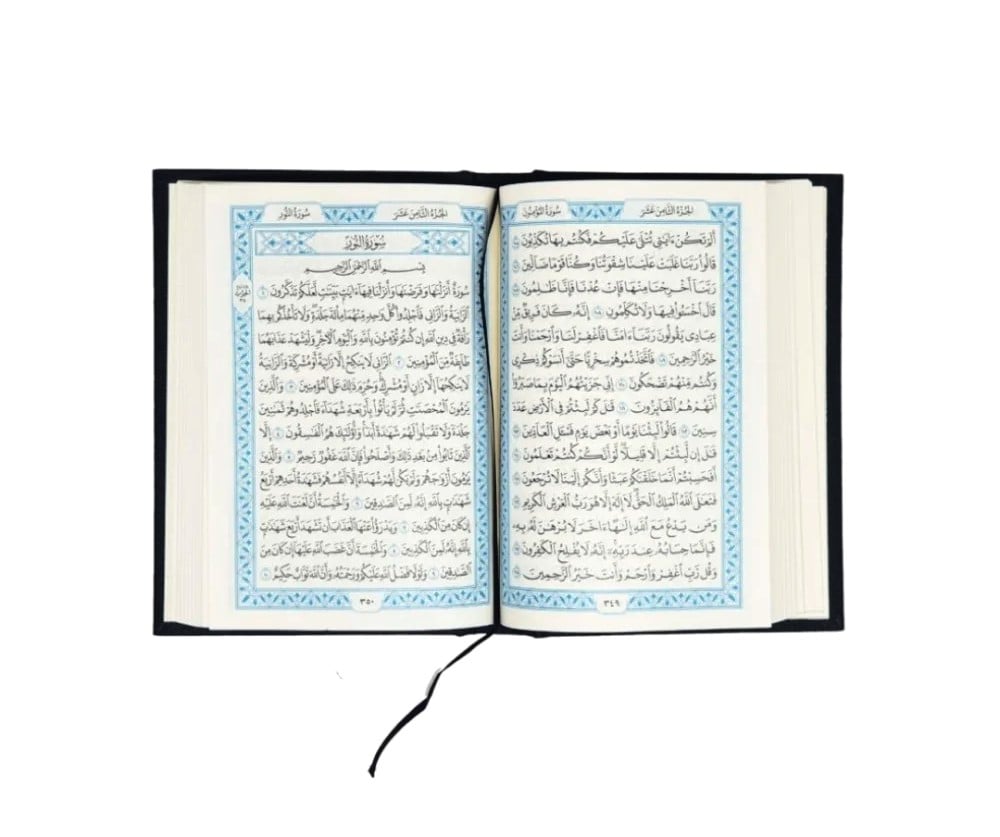 الجُزْءُ الثَّامِنَ عَشَرَ سُورَةُ المُؤْمِنُونَ
أَلَمْ تَكُنْ ءَايَٰتِي تُتْلَىٰ عَلَيْكُمْ فَكُنتُم بِهَا تُكَذِّبُونَ ١٠٥
قَالُوا۟ رَبَّنَا غَلَبَتْ عَلَيْنَا شِقْوَتُنَا وَكُنَّا قَوْمًا ضَآلِّينَ ١٠٦
رَبَّنَآ أَخْرِجْنَا مِنْهَا فَإِنْ عُدْنَا فَإِنَّا ظَٰلِمُونَ ١٠٧
قَالَ ٱخْسَـُٔوا۟ فِيهَا وَلَا تُكَلِّمُونِ ١٠٨ إِنَّهُۥ كَانَ فَرِيقٌ مِّنْ
عِبَادِي يَقُولُونَ رَبَّنَآ ءَامَنَّا فَٱغْفِرْ لَنَا وَٱرْحَمْنَا وَأَنتَ
خَيْرُ ٱلرَّٰحِمِينَ ١٠٩ فَٱتَّخَذْتُمُوهُمْ سِخْرِيًّا حَتَّىٰٓ أَنسَوْكُمْ ذِكْرِي
وَكُنتُم مِّنْهُمْ تَضْحَكُونَ ١١٠ إِنِّي جَزَيْتُهُمُ ٱلْيَوْمَ بِمَا صَبَرُوٓا۟
أَنَّهُمْ هُمُ ٱلْفَآئِزُونَ ١١١ قَٰلَ كَمْ لَبِثْتُمْ فِي ٱلْأَرْضِ عَدَدَ
سِنِينَ ١١٢ قَالُوا۟ لَبِثْنَا يَوْمًا أَوْ بَعْضَ يَوْمٍ فَسْـَٔلِ ٱلْعَآدِّينَ ١١٣
قَٰلَ إِن لَّبِثْتُمْ إِلَّا قَلِيلًا لَّوْ أَنَّكُمْ كُنتُمْ تَعْلَمُونَ ١١٤
أَفَحَسِبْتُمْ أَنَّمَا خَلَقْنَٰكُمْ عَبَثًا وَأَنَّكُمْ إِلَيْنَا لَا تُرْجَعُونَ ١١٥
فَتَعَٰلَى ٱللَّهُ ٱلْمَلِكُ ٱلْحَقُّ لَآ إِلَٰهَ إِلَّا هُوَ رَبُّ ٱلْعَرْشِ ٱلْكَرِيمِ ١١٦
وَمَن يَدْعُ مَعَ ٱللَّهِ إِلَٰهًا ءَاخَرَ لَا بُرْهَٰنَ لَهُۥ بِهِۦ
فَإِنَّمَا حِسَابُهُۥ عِندَ رَبِّهِۦٓ إِنَّهُۥ لَا يُفْلِحُ ٱلْكَٰفِرُونَ ١١٧
وَقُل رَّبِّ ٱغْفِرْ وَٱرْحَمْ وَأَنتَ خَيْرُ ٱلرَّٰحِمِينَ ١١٨
٣٤٩
الجُزْءُ الثَّامِنَ عَشَرَ سُورَةُ النُّورِ
سُورَةُ النُّورِ
بِسْمِ ٱللَّهِ ٱلرَّحْمَٰنِ ٱلرَّحِيمِ
سُورَةٌ أَنزَلْنَٰهَا وَفَرَضْنَٰهَا وَأَنزَلْنَا فِيهَآ ءَايَٰتٍۭ بَيِّنَٰتٍ لَّعَلَّكُمْ تَذَكَّرُونَ ١
ٱلزَّانِيَةُ وَٱلزَّانِي فَٱجْلِدُوا۟ كُلَّ وَٰحِدٍ مِّنْهُمَا مِا۟ئَةَ جَلْدَةٍ وَلَا تَأْخُذْكُم بِهِمَا
رَأْفَةٌ فِي دِينِ ٱللَّهِ إِن كُنتُمْ تُؤْمِنُونَ بِٱللَّهِ وَٱلْيَوْمِ ٱلْءَاخِرِ وَلْيَشْهَدْ عَذَابَهُمَا
طَآئِفَةٌ مِّنَ ٱلْمُؤْمِنِينَ ٢ ٱلزَّانِي لَا يَنكِحُ إِلَّا زَانِيَةً أَوْ مُشْرِكَةً وَٱلزَّانِيَةُ
لَا يَنكِحُهَآ إِلَّا زَانٍ أَوْ مُشْرِكٌ وَحُرِّمَ ذَٰلِكَ عَلَى ٱلْمُؤْمِنِينَ ٣ وَٱلَّذِينَ
يَرْمُونَ ٱلْمُحْصَنَٰتِ ثُمَّ لَمْ يَأْتُوا۟ بِأَرْبَعَةِ شُهَدَآءَ فَٱجْلِدُوهُمْ ثَمَٰنِينَ
جَلْدَةً وَلَا تَقْبَلُوا۟ لَهُمْ شَهَٰدَةً أَبَدًا وَأُو۟لَٰٓئِكَ هُمُ ٱلْفَٰسِقُونَ ٤ إِلَّا
ٱلَّذِينَ تَابُوا۟ مِنۢ بَعْدِ ذَٰلِكَ وَأَصْلَحُوا۟ فَإِنَّ ٱللَّهَ غَفُورٌ رَّحِيمٌ ٥ وَٱلَّذِينَ
يَرْمُونَ أَزْوَٰجَهُمْ وَلَمْ يَكُن لَّهُمْ شُهَدَآءُ إِلَّآ أَنفُسُهُمْ فَشَهَٰدَةُ أَحَدِهِمْ أَرْبَعُ
شَهَٰدَٰتٍۭ بِٱللَّهِ إِنَّهُۥ لَمِنَ ٱلصَّٰدِقِينَ ٦ وَٱلْخَٰمِسَةُ أَنَّ لَعْنَتَ ٱللَّهِ عَلَيْهِ
إِن كَانَ مِنَ ٱلْكَٰذِبِينَ ٧ وَيَدْرَؤُا۟ عَنْهَا ٱلْعَذَابَ أَن تَشْهَدَ أَرْبَعَ شَهَٰدَٰتٍۭ
بِٱللَّهِ إِنَّهُۥ لَمِنَ ٱلْكَٰذِبِينَ ٨ وَٱلْخَٰمِسَةَ أَنَّ غَضَبَ ٱللَّهِ عَلَيْهَآ إِن كَانَ مِنَ
ٱلصَّٰدِقِينَ ٩ وَلَوْلَا فَضْلُ ٱللَّهِ عَلَيْكُمْ وَرَحْمَتُهُۥ وَأَنَّ ٱللَّهَ تَوَّابٌ حَكِيمٌ ١٠
٣٥٠